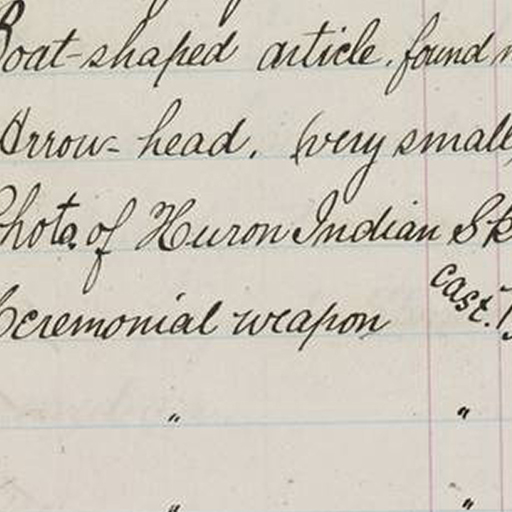 Boat-shaped article, found
Arrow-head. (very small
Photo. of Huron Indian Sk
Ceremonial weapon cast.
" "
" "